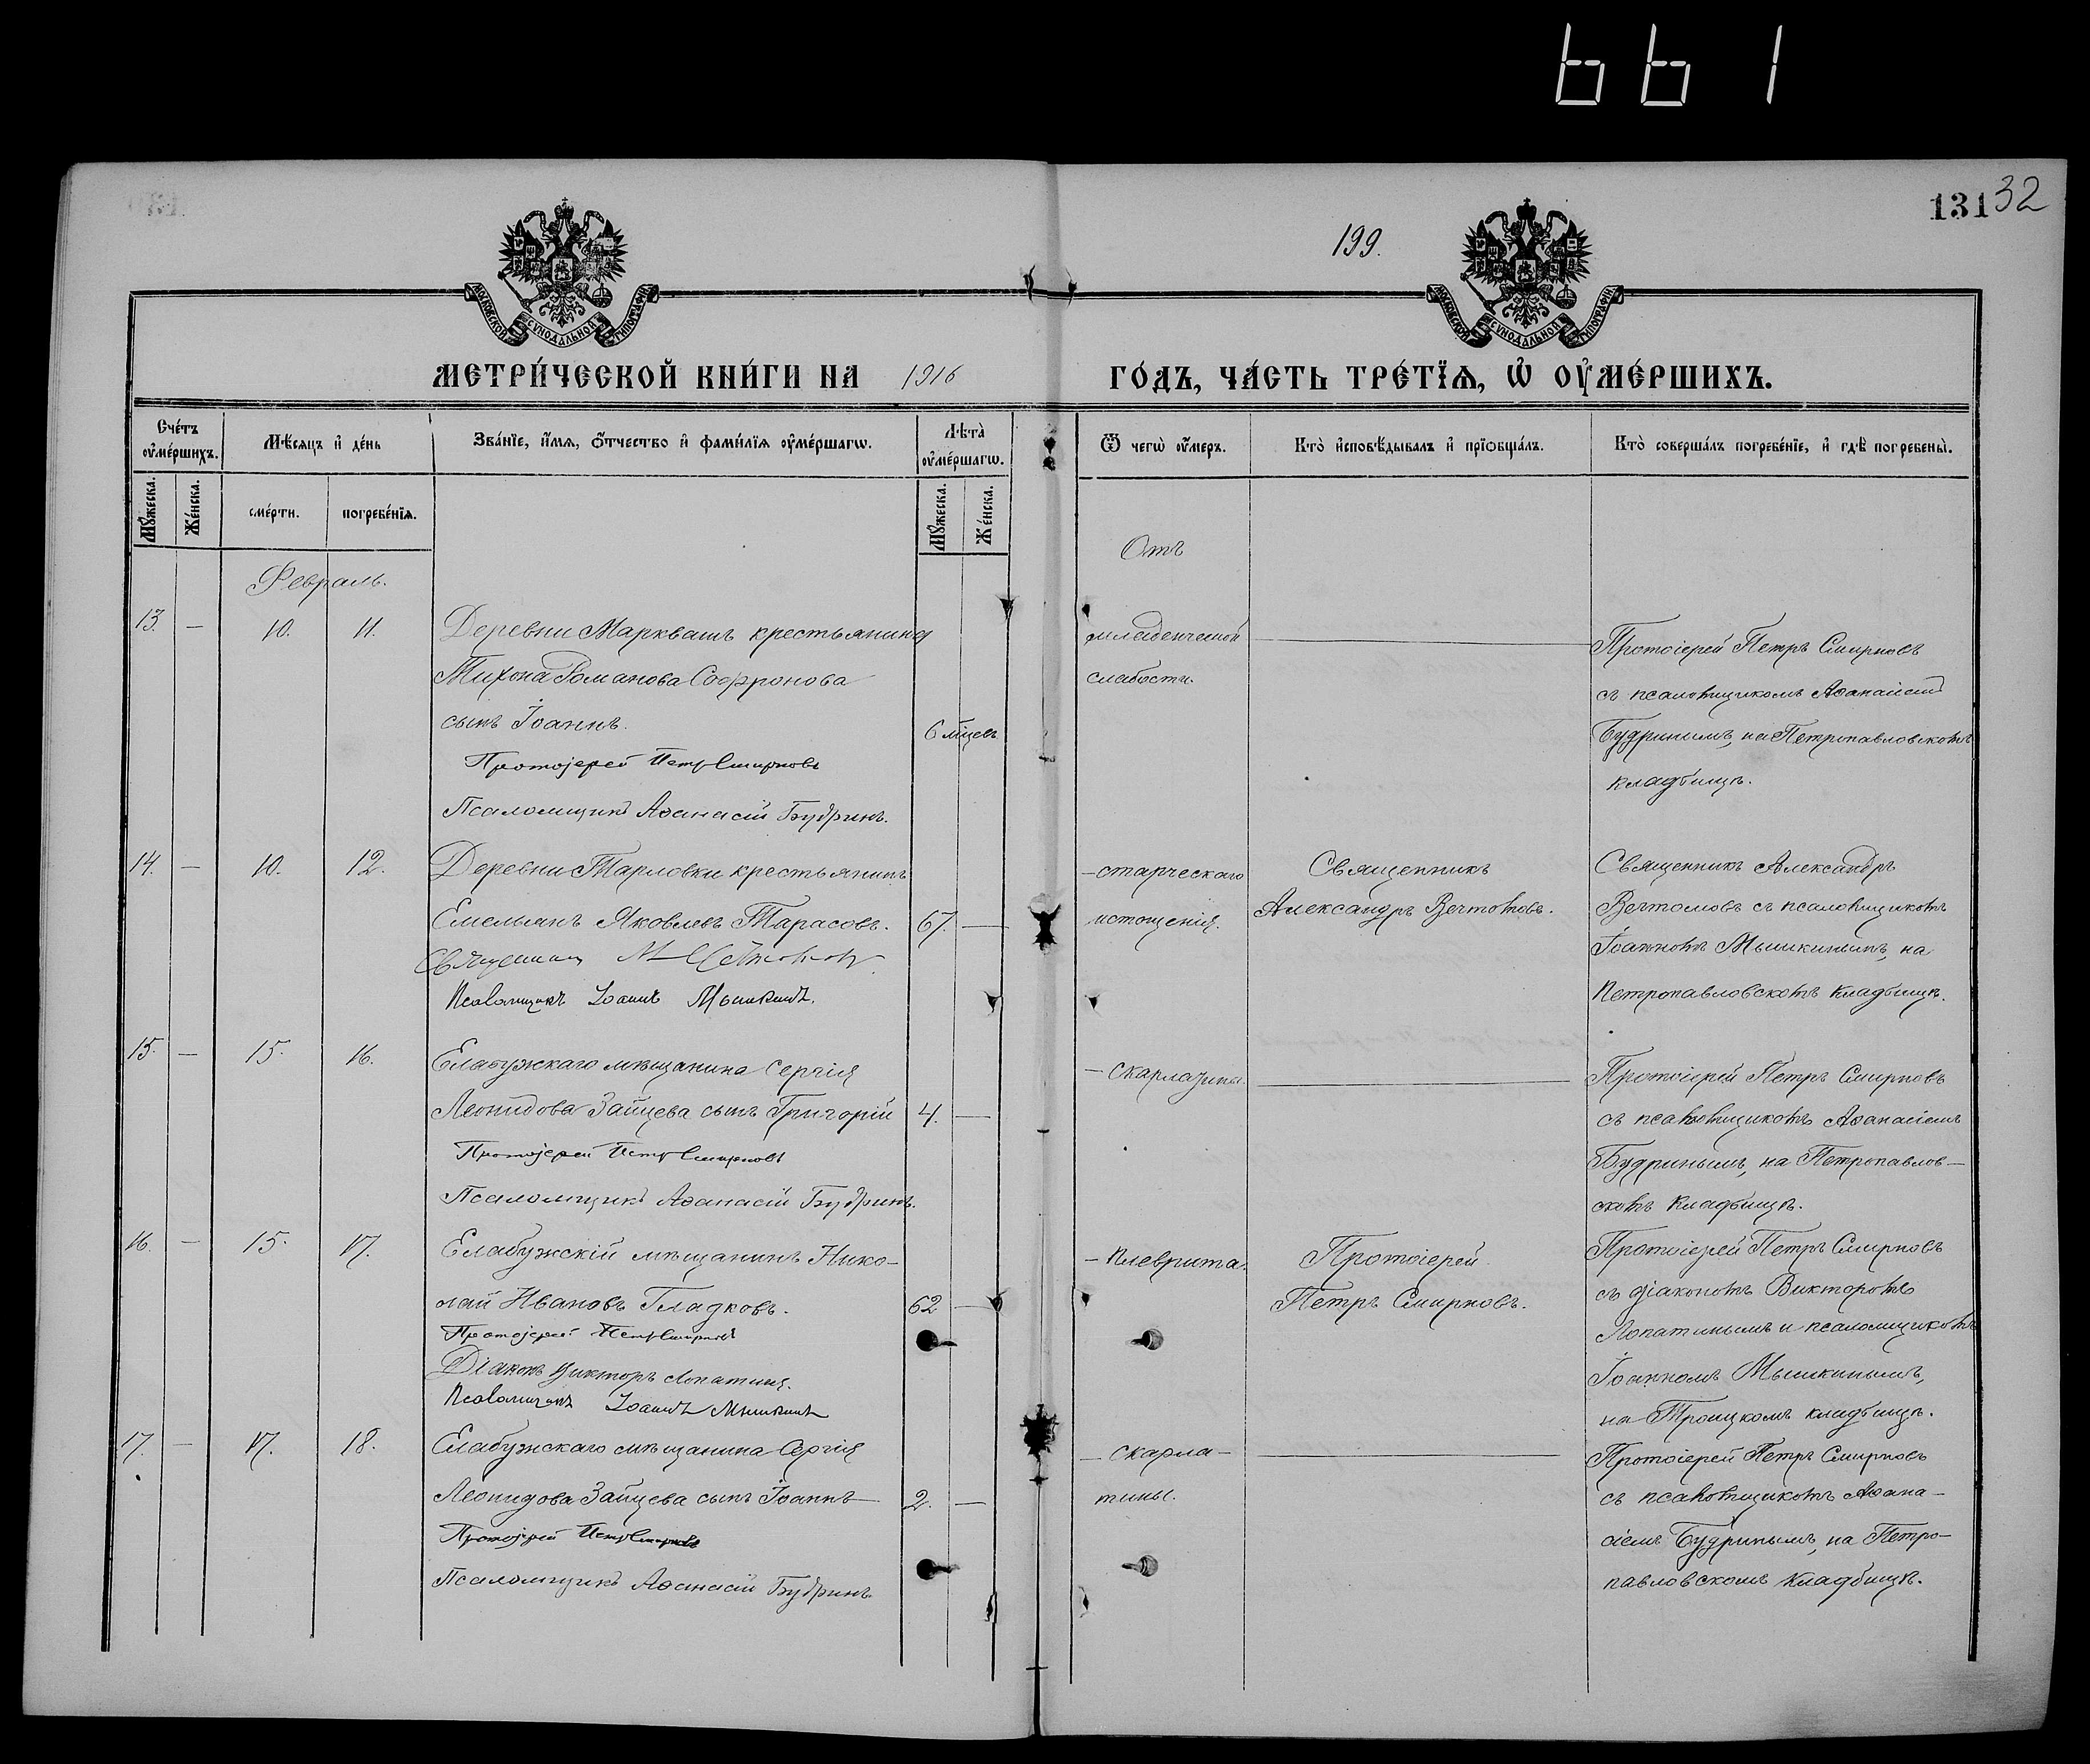 661
131
32
199.
МОСКОВСКОЙ СУНОДАЛЬНОЙ ТИПОГРАФІИ
МОСКОВСКОЙ СУНОДАЛЬНОЙ ТИПОГРАФІИ
МЕТРИ́ЧЕСКОЙ КНИ́ГИ НА 1916 ГО́ДЪ, ЧА́СТЬ ТРЕ́ТЇѦ, Ѡ҆ ОУ҆МЕ́РШИХЪ.
Сче́тъ оу҆ме́ршихъ.
Мѣ́сяцъ и҆ де́нь
Зва́нїе, и҆́мѧ, ѻ҆́тчество и҆ фами́лїѧ оу҆ме́ршагѡ.
Лѣ́та̀ оу҆ме́ршагѡ.
Ѿ чегѡ̀ оу҆́меръ.
Кто̀ и҆сповѣ́дывалъ и҆ прїѡбща́лъ.
Кто̀ соверша́лъ погребе́нїе, и҆ гдѣ̀ погребены̀.
Мꙋ́жеска.
Же́нска.
сме́рти.
погребе́нїѧ.
Мꙋ́жеска.
Же́нска.
Февраль.
Отъ
13. — 10. 11. Деревни Марквашъ крестьянина
Тихона Романова Софронова
сынъ Іоаннъ. 6 мѣцевъ
Протоіерей Петръ Смирновъ
Псаломщикъ Аѳанасій Будринъ.
младенческой
слабости.
Протоіерей Петръ Смирновъ
съ псаломщикомъ Аѳанасіемъ
Будринымъ, на Петропавловскомъ
кладбищѣ.
14. — 10. 12. Деревни Тарловки крестьянинъ
Емельянъ Яковлевъ Тарасовъ. 67. —
Священникъ
Псаломщикъ Іоаннъ Мышкинъ.
— старческаго
истощенія.
Священникъ
Александръ Вечтомовъ.
Священникъ Александръ
Вечтомовъ съ псаломщикомъ
Іоанномъ Мышкинымъ, на
Петропавловскомъ кладбищѣ.
15. — 15. 16. Елабужскаго мѣщанина Сергія
Леонидова Зайцева сынъ Григорій 4. —
Протоіерей Петръ Смирновъ
Псаломщикъ Аѳанасій Будринъ.
— скарлатины.
Протоіерей Петръ Смирновъ
съ псаломщикомъ Аѳанасіемъ
Будринымъ, на Петропавлов—
скомъ кладбищѣ.
16. — 15. 17. Елабужскій мѣщанинъ Нико—
лай Ивановъ Гладковъ. 62 —
Протоіерей Петръ Смирновъ
Діаконъ Викторъ Лопатинъ.
Псаломщикъ Іоаннъ Мышкинъ
— плеврита.
Протоіерей
Петръ Смирновъ.
Протоіерей Петръ Смирновъ
съ діакономъ Викторомъ
Лопатинымъ и псаломщикомъ
Іоанномъ Мышкинымъ,
на Троицкомъ кладбищѣ.
17. — 17. 18. Елабужскаго мѣщанина Сергія
Леонидова Зайцева сынъ Іоаннъ 2. —
Протоіерей Петръ Смирновъ
Псаломщикъ Аѳанасій Будринъ.
— скарла—
тины.
Протоіерей Петръ Смирновъ
съ псаломщикомъ Аѳана—
сіемъ Будринымъ, на Петро—
павловскомъ кладбищѣ.